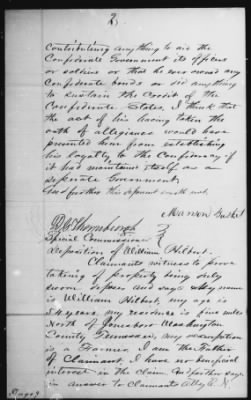 8.
contributing anything to aid the
Confederate Government its officers
or soldiers or that he ever owned any
Confederate bonds or did anything
to sustain the Credit of the
Confederate States, I think that
the act of his having taken the
oath of allegiance would have
prevented him from establishing
his loyalty to the Confederacy if
it had maintained itself as a
seperate Government,
And further this deponent saith not.
Special Commissioner
Deposition of William Hilbert.
Claimants witness to prove
taking of property being duly
sworn deposes and says My name
is William Hilbert, my age is
54 years, my residence is five miles
North of Jonesboro Washington
County, Tennessee, my occupation
is a Farmer, I am the Father
of Claimant, I have no beneficial
interest in the Claim. And further says
in answer to Claimants Atty